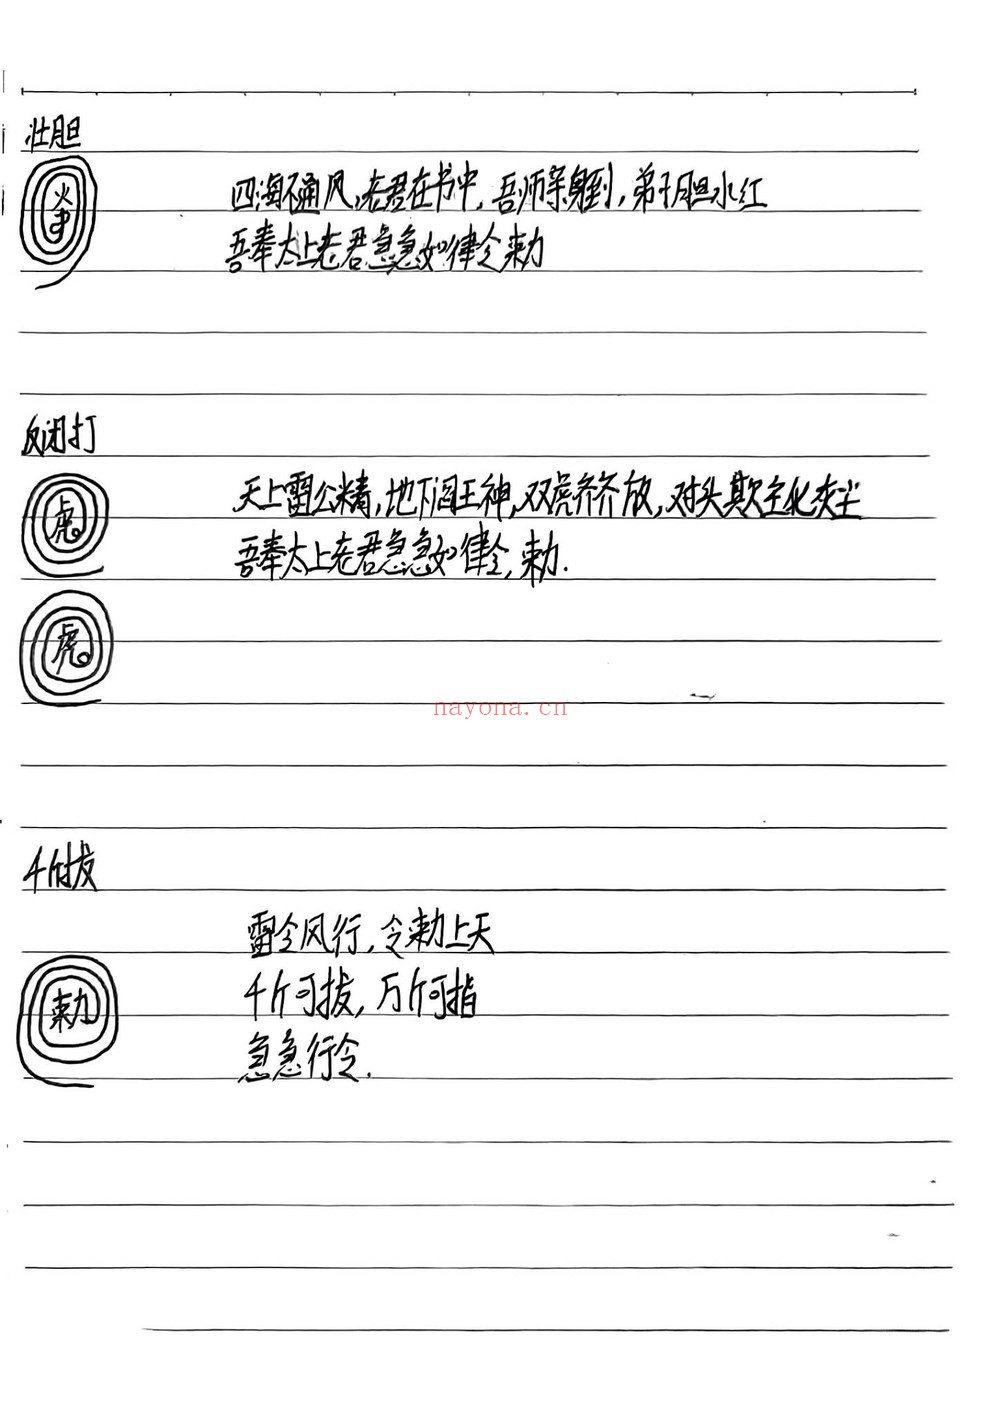 壮胆
四海不通风,老君在书中,吾师亲身到,弟子胆水红
吾奉太上老君急急如律令敕
反闭打
虎
天上雷公精,地下阎王神,双虎齐齐放,对头欺主化灰尘
吾奉太上老君急急如律令,敕.
虎
nayona.cn
千斤拔
雷令风行,令敕上天
敕
千斤可拔,万斤可指
急急行令.